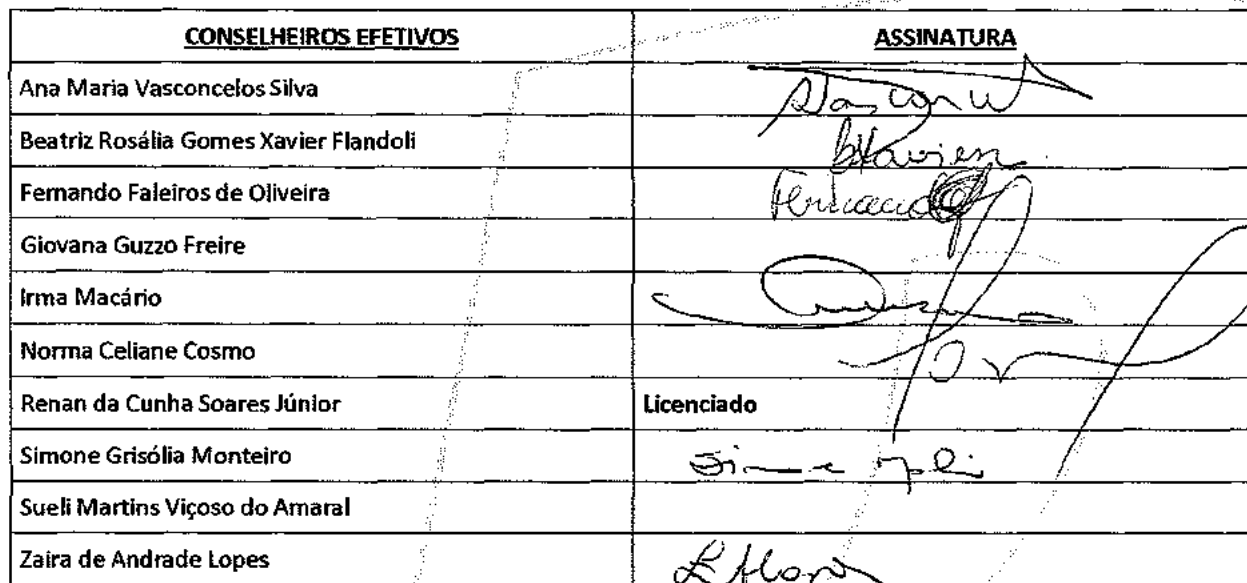 CONSELHEIROS EFETIVOS ASSINATURA
Ana Maria Vasconcelos Silva
Beatriz Rosália Gomes Xavier Flandoli BXavier
Fernando Faleiros de Oliveira Fernando
Giovana Guzzo Freire
Irma Macário
Norma Celiane Cosmo
Renan da Cunha Soares Júnior Licenciado
Simone Grisólia Monteiro
Sueli Martins Viçoso do Amaral
Zaira de Andrade Lopes